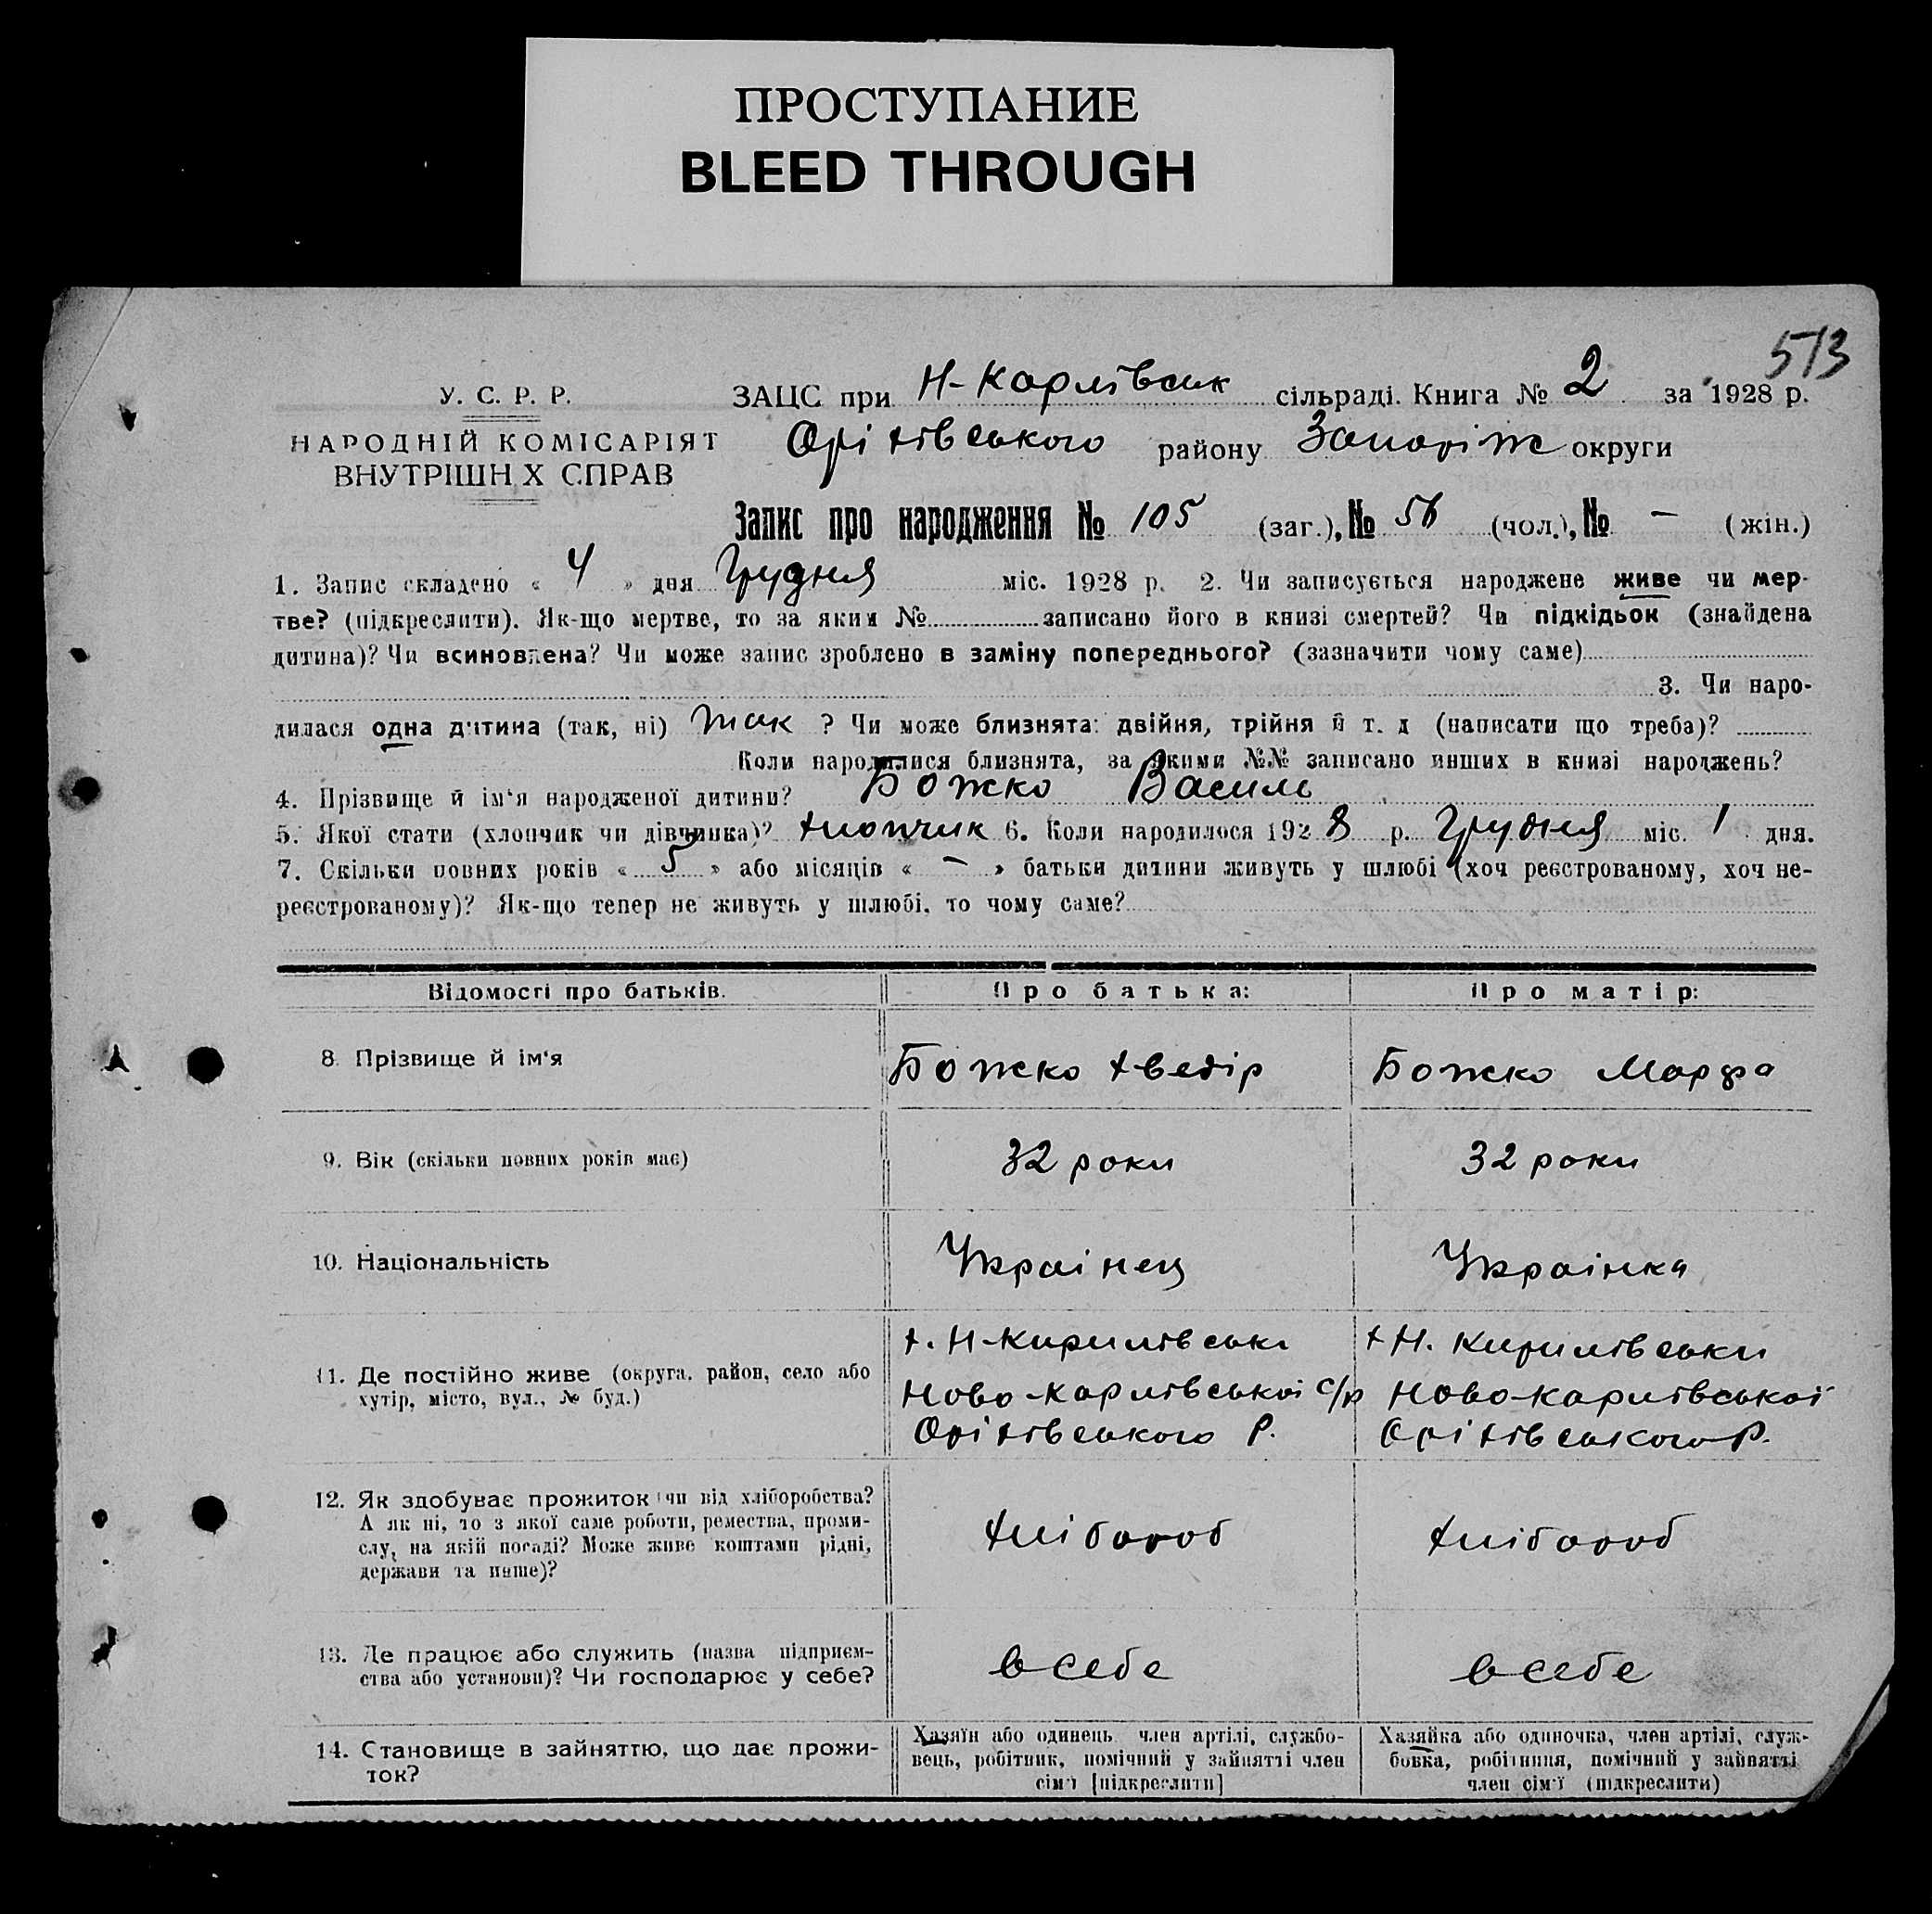 ПРОСТУПАНИЕ
BLEED THROUGH
513
У. С. Р. Р.
НАРОДНІЙ КОМІСАРІЯТ
ВНУТРІШН Х СПРАВ
ЗАЦС при Н-Карлівськ сільраді. Книга № 2 за 1928 р.
Оріхівського району Запоріж округи
Запис про народження № 105 (заг.), № 56 (чол.), № – (жін.)
1. Запис складено « 4 » дня Грудня міс. 1928 р. 2. Чи записується народжене живе чи мер-
тве? (підкреслити). Як-що мертве, то за яким № записано його в книзі смертей? Чи підкідьок (знайдена
дитина)? Чи всиновлена? Чи може запис зроблено в заміну попереднього? (зазначити чому саме)
3. Чи наро-
дилася одна дитина (так, ні) так ? Чи може близнята: двійня, трійня й т. д (написати що треба)?
Коли народилися близнята, за якими №№ записано инших в книзі народжень?
4. Прізвище й ім'я народженої дитини? Божко Василь
5. Якої стати (хлопчик чи дівчинка)? хлопчик 6. Коли народилося 1928 р. Грудня міс. 1 дня.
7. Скільки повних років « 5 » або місяців « – » батьки дитини живуть у шлюбі (хоч реєстрованому, хоч не-
реєстрованому)? Як-що тепер не живуть у шлюбі, то чому саме?
Відомості про батьків. Про батька: Про матір:
8. Прізвище й ім'я Божко Хведір Божко Марфа
9. Вік (скільки повних років має) 32 роки 32 роки
10. Національність Украінец Украінка
11. Де постійно живе (округа, район, село або
хутір, місто, вул., № буд.)
х. Н-Кирилівськи
Ново-Карлівськоі с/р
Оріхівського Р.
х Н. Кирилівськи
Ново-Карлівськоі
Оріхівського Р.
12. Як здобуває прожиток чи від хліборобства?
А як ні, то з якої саме роботи, ремества, проми-
слу, на якій посаді? Може живе коштами рідні,
держави та инше)?
хлібороб хлібороб
13. Де працює або служить (назва підприєм-
ства або установи)? Чи господарює у себе?
в себе в себе
14. Становище в зайняттю, що дає прожи-
ток?
Хазяїн або одинець член артілі, службо-
вець, робітник, помічний у зайнятті член
сім'ї [підкреслити]
Хазяйка або одиночка, член артілі, служ-
бовка, робітниця, помічний у зайнятті
член сім'ї (підкреслити)